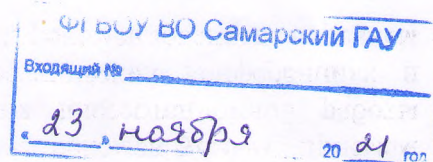 ФГБОУ ВО Самарский ГАУ
Входящий №
«23» ноября 2021 год